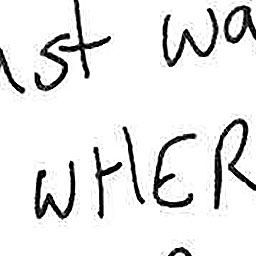 ust wa
WHER